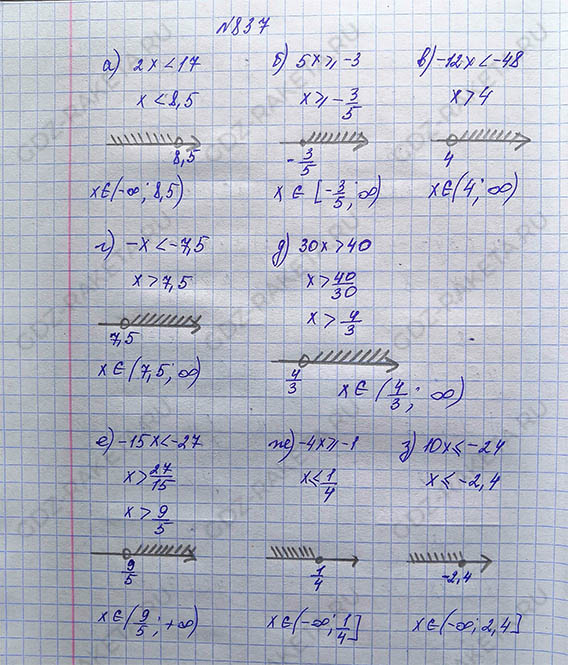 №837
а) 2x < 17
x < 8,5
8,5
x ∈ (-∞; 8,5)
б) 5x ⩾ -3
x ⩾ -3/5
-3/5
x ∈ [-3/5; ∞)
в) -12x < -48
x > 4
4
x ∈ (4; ∞)
г) -x < -7,5
x > 7,5
7,5
x ∈ (7,5; ∞)
д) 30x > 40
x > 40/30
x > 4/3
4/3
x ∈ (4/3; ∞)
е) -15x < -27
x > 27/15
x > 9/5
9/5
x ∈ (9/5; +∞)
ж) -4x ⩾ -1
x ⩽ 1/4
1/4
x ∈ (-∞; 1/4]
з) 10x ⩽ -24
x ⩽ -2,4
-2,4
x ∈ (-∞; 2,4]
GDZ-RAKETA.RU